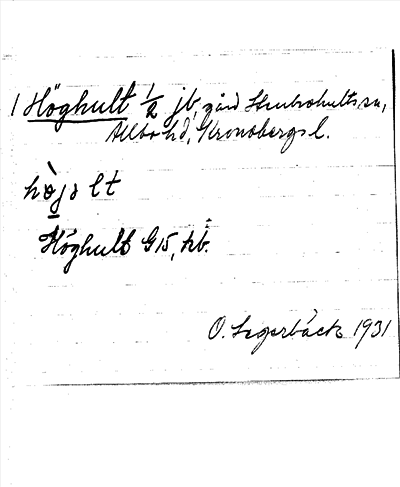 1 Höghult 1/2 jb, gård Stenbrohults sn,
Allbo hd, Kronobergs l.
högolt
Höghult G15, kb.
O. Segerbäck 1931